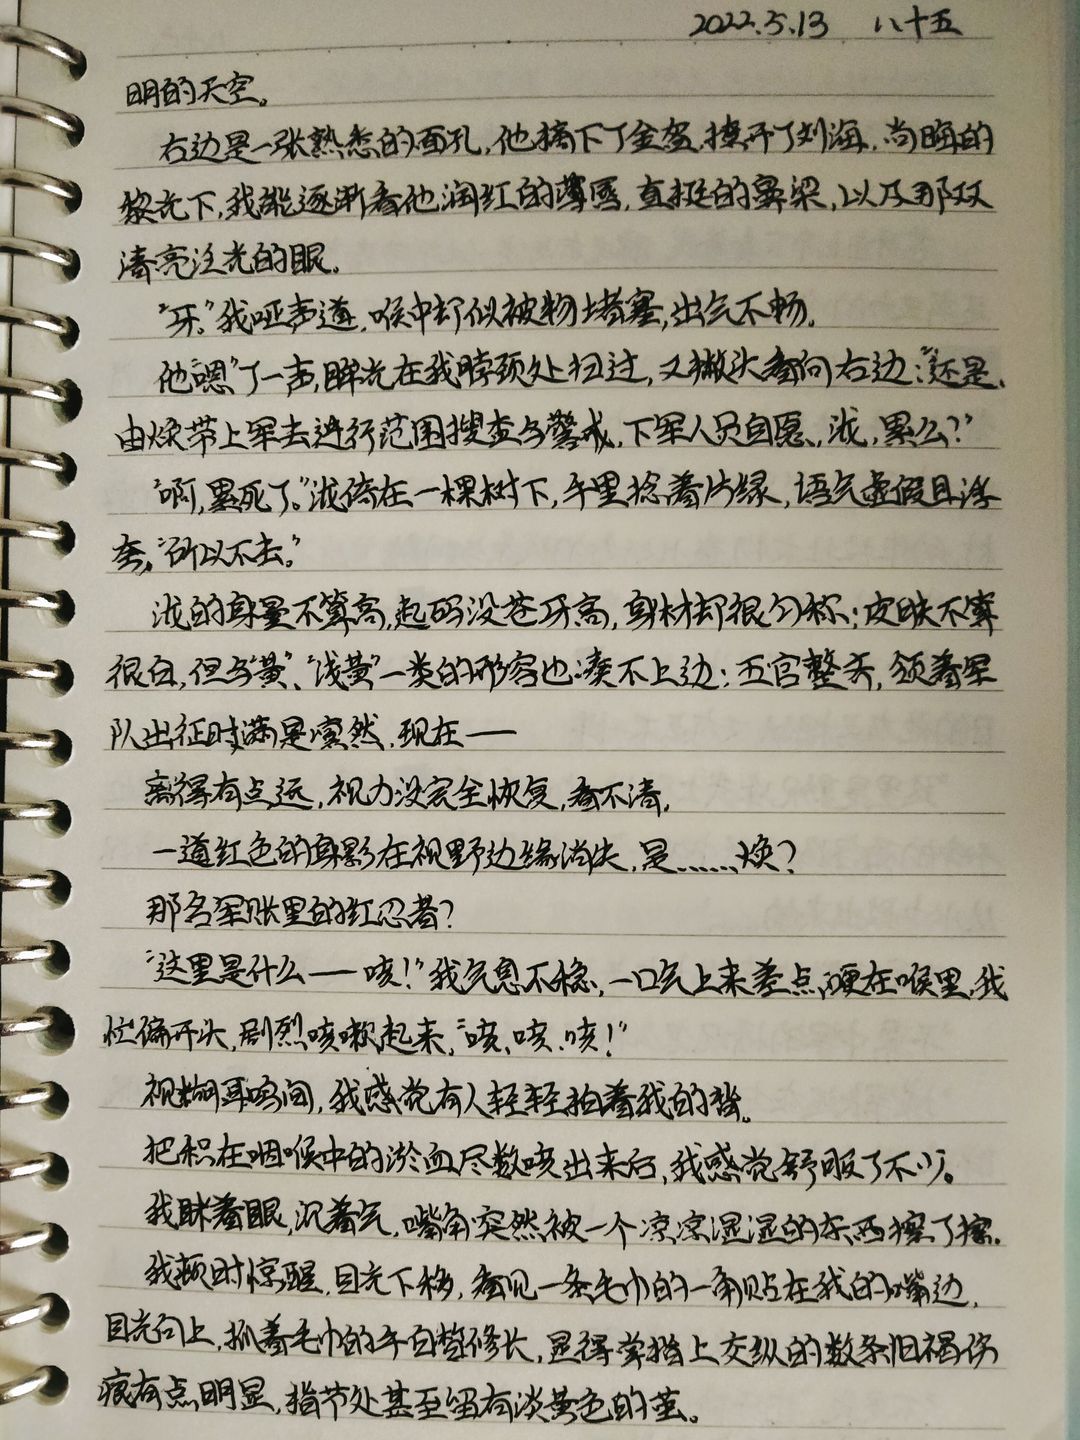 2022.5.13 八十五
明的天空。
右边是一张熟悉的面孔,他摘下了金盔,撩开了刘海,尚晦的
黎光下,我能逐渐看他润红的薄唇,直挺的鼻梁,以及那双
清亮泛光的眼。
“牙。”我哑声道,喉中却似被物堵塞,出气不畅。
他“嗯”了一声,眸光在我脖颈处扫过,又撇头看向右边:“还是
由焕带上军去进行范围搜查与警戒,下军人员自愿,泷,累么?”
“啊,累死了。”泷倚在一棵树下,手里捻着片绿,语气虚假且浮
夸,“所以不去。”
泷的身量不算高,起码没苍牙高,身材却很匀称;皮肤不算
很白,但与“黄”、“浅黄”一类的形容也凑不上边;五官整齐,领着军
队出征时满是凛然,现在——
离得有点远,视力没完全恢复,看不清。
一道红色的身影在视野边缘消失,是……焕?
那名军账里的红忍者?
“这里是什么——咳!”我气息不稳,一口气上来差点哽在喉里,我
忙偏开头,剧烈咳嗽起来,“咳、咳、咳!”
视糊耳鸣间,我感觉有人轻轻拍着我的背。
把积在咽喉中的淤血尽数咳出来后,我感觉舒服了不少。
我眯着眼,沉着气,嘴角突然被一个凉凉湿湿的东西擦了擦。
我顿时惊醒,目光下移,看见一条毛巾的一角贴在我的嘴边,
目光向上,抓着毛巾的手白皙修长,显得掌指上交纵的数条旧褐伤
痕有点明显,指节处甚至留有淡黄色的茧。